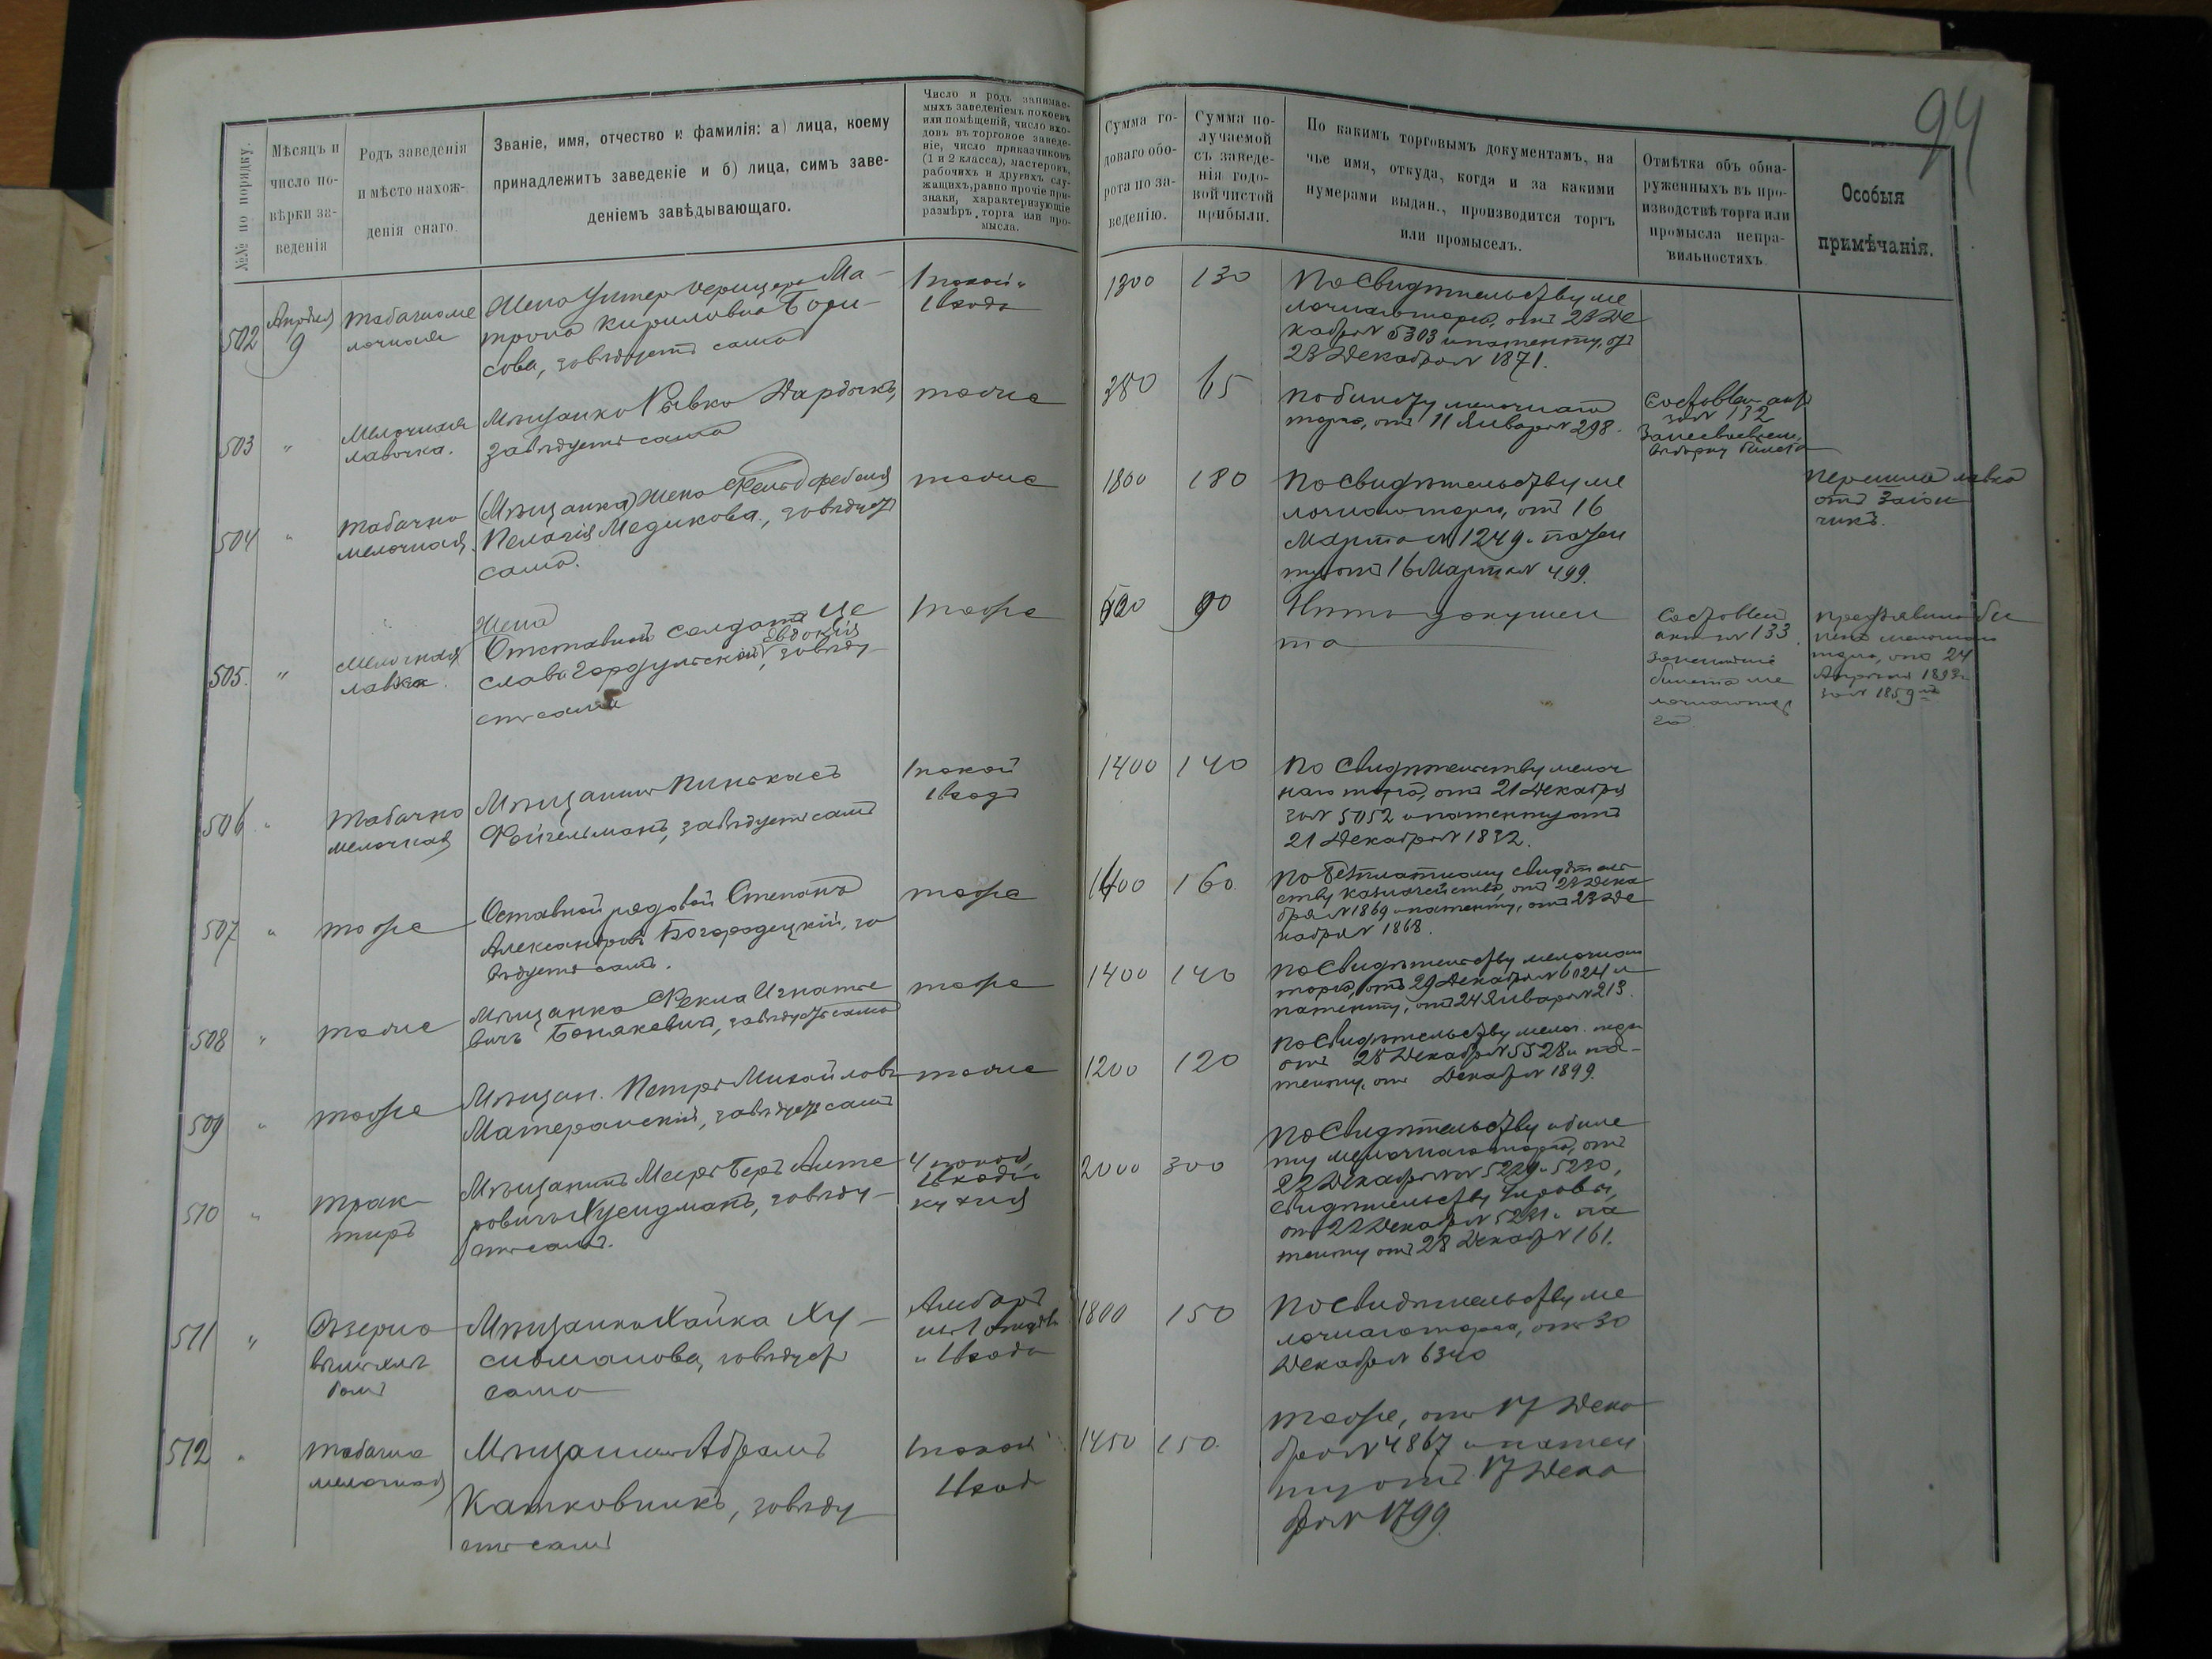 94
№№ по порядку.
Мѣсяцъ и
число по-
вѣрки за-
веденія
Родъ заведенія
и мѣсто нахож-
денія онаго.
Званіе, имя, отчество и фамилія: а) лица, коему
принадлежитъ заведеніе и б) лица, симъ заве-
деніемъ завѣдывающаго.
Число и родъ занимае-
мыхъ заведеніемъ покоевъ
или помѣщеній, число вхо-
довъ въ торговое заведе-
ніе, число приказчиковъ
(1 и 2 класса), мастеровъ,
рабочихъ и другихъ слу-
жащихъ, равно прочіе при-
знаки, характеризующіе
размѣръ торга или про-
мысла.
Сумма го-
доваго обо-
рота по за-
веденію.
Сумма по-
лучаемой
съ заведе-
нія годо-
вой чистой
прибыли.
По какимъ торговымъ документамъ, на
чье имя, откуда, когда и за какими
нумерами выдан., производится торгъ
или промыселъ.
Отмѣтка объ обна-
руженныхъ въ про-
изводствѣ торга или
промысла непра-
вильностяхъ.
Особыя
примѣчанія.
502
Апрѣля
9
Табачноме
лочная
Жена Унтеръ Офицера Ма-
трона Кириловна Бори-
сова, завѣдуетъ сама
1 покой и
1 входъ
1300
130
По свидѣтельству ме
лочнаго торга, отъ 23 Де
кабря № 5303 и патенту, отъ
23 Декабря № 1871.
503
"
Мелочная
лавочка.
Мѣщанка Рывка
завѣдуетъ сама
тоже
350
65
По билету мелочнаго
торга, отъ 11 Января № 298.
Составленъ актъ
за № 132
выборку билета
504
"
Табачно
мелочная
(Мѣщанка) Жена Фельдфебеля
Пелагія Медикова, завѣдуетъ
сама.
тоже
1800
180
По свидѣтельству ме
лочнаго торга, отъ 16
Марта № 1249 и патен
ту отъ 16 Марта № 499.
Перешла лавка
отъ
505.
"
Мелочная
лавка.
Жена
Отставнаго солдата
Евдокія
завѣду-
етъ сама
тоже
90
Нѣтъ докумен
та
Составленъ
актъ № 133
билета ме
лочнаго тор
га
билетъ мелочнаго
торга, отъ 24
Апрѣля 1893 г.
за № 1859
506
"
Табачно
мелочная
Мѣщанинъ Пинькасъ
Фойгельманъ, завѣдуетъ самъ
1 покой
1 входъ
1400
140
По свидѣтельству мелоч
наго торга, отъ 21 Декабря
за № 5052 и патенту отъ
21 Декабря № 1832.
507
"
тоже
Оставной рядовой Степанъ
Александровъ Богородецкій, за
вѣдуетъ самъ.
тоже
1600
160.
По безплатному свидѣтель
ству казначейства, отъ 23 Дека
бря № 1869 и патенту, отъ 23 Де
кабря № 1868.
508
"
тоже
Мѣщанка Фекла Игнатье
вичъ завѣдуетъ сама
тоже
1400
140
По свидѣтельству мелочнаго
торга, отъ 29 Декабря № 6024 и
патенту, отъ 24 Января № 213.
509
"
тоже
Мѣщан. Петръ Михайловъ
завѣдуетъ самъ
тоже
1200
120
По свидѣтельству мелоч. торга
отъ 28 Декабря № 5528 и па-
тенту, отъ Декабря № 1899.
510
"
Трак-
тиръ
Мѣщанинъ Меиръ Беръ
завѣду-
етъ самъ.
4 покоя,
кухня
2000
300
По свидѣтельству и биле
ту мелочнаго торга, отъ
22 Декабря №№ 5229 и 5230,
свидѣтельству
отъ 22 Декабря № 5231 и па
тенту отъ 28 Декабря № 161.
511
"
Мѣщанка Хайка Ху-
сидманова, завѣдуетъ
сама
Амбаръ
и 1 входъ
1800
150
По свидѣтельству ме
лочнаго торга, отъ 30
Декабря № 6340
512
"
Табачно
мелочная
Мѣщанинъ Абрамъ
Катковникъ, завѣду
етъ самъ
1 покой
1 входъ
1450
150.
Тоже, отъ 17 Дека
бря № 4867 и патен
ту отъ 17 Дека
бря № 1799.